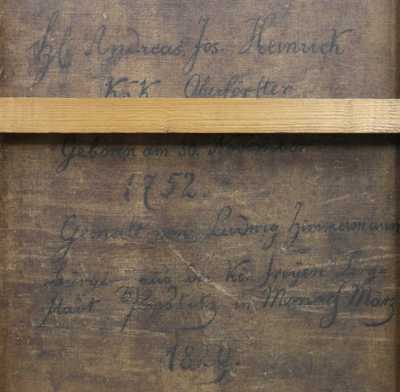 Andreas Jos. Heinrich
K. K. Oberförster
Geboren am 30. November
1752.
Gemalt von Ludwig Zimmermann
aus der K. freyen Berg
stadt in Monath März